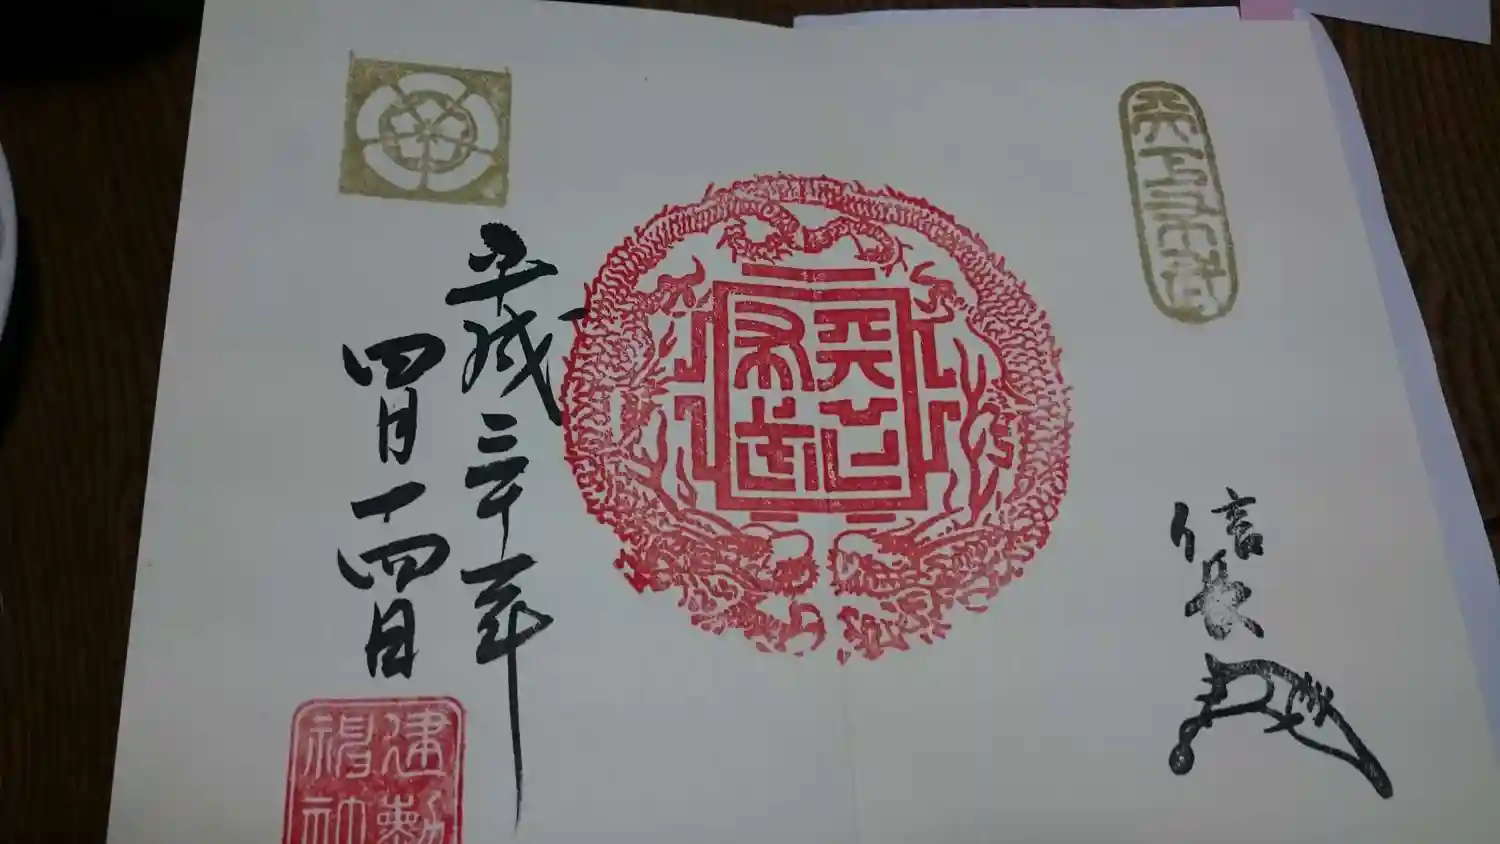 信長
天下
布武
平成三十一年
四月十四日
建勲
神社